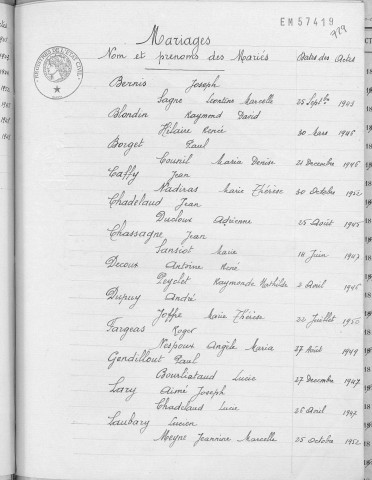 EM57419
929
Mariages
Nom et prénoms des Mariés Dates des Actes
Bernis Joseph
Sagne Leontine Marcelle 25 Septbre 1943
Blondin Raymond David
Hilaire Renée 30 Mars 1946
Borget Paul
Counil Maria Denise 21 Decembre 1946
Caffy Jean
Nadiras Marie Thérèse 30 Octobre 1952
Chadelaud Jean
Ducloux Adrienne 25 Août 1945
Chassagne Jean
Sansiot Marie 18 Juin 1947
Decoux Antoine René
Peyclet Raymonde Mathilde 2 Avril 1946
Dupuy André
Joffre Marie Thérèse 22 Juillet 1950
Fargeas Roger
Nespoux Angèle Maria 27 Août 1949
Gendillout Paul
Bourliataud Lucie 27 Decembre 1947
Lary Aimé Joseph
Chadelaud Lucie 26 Avril 1947
Laubary Lucien
Meyne Jeannine Marcelle 25 Octobre 1952